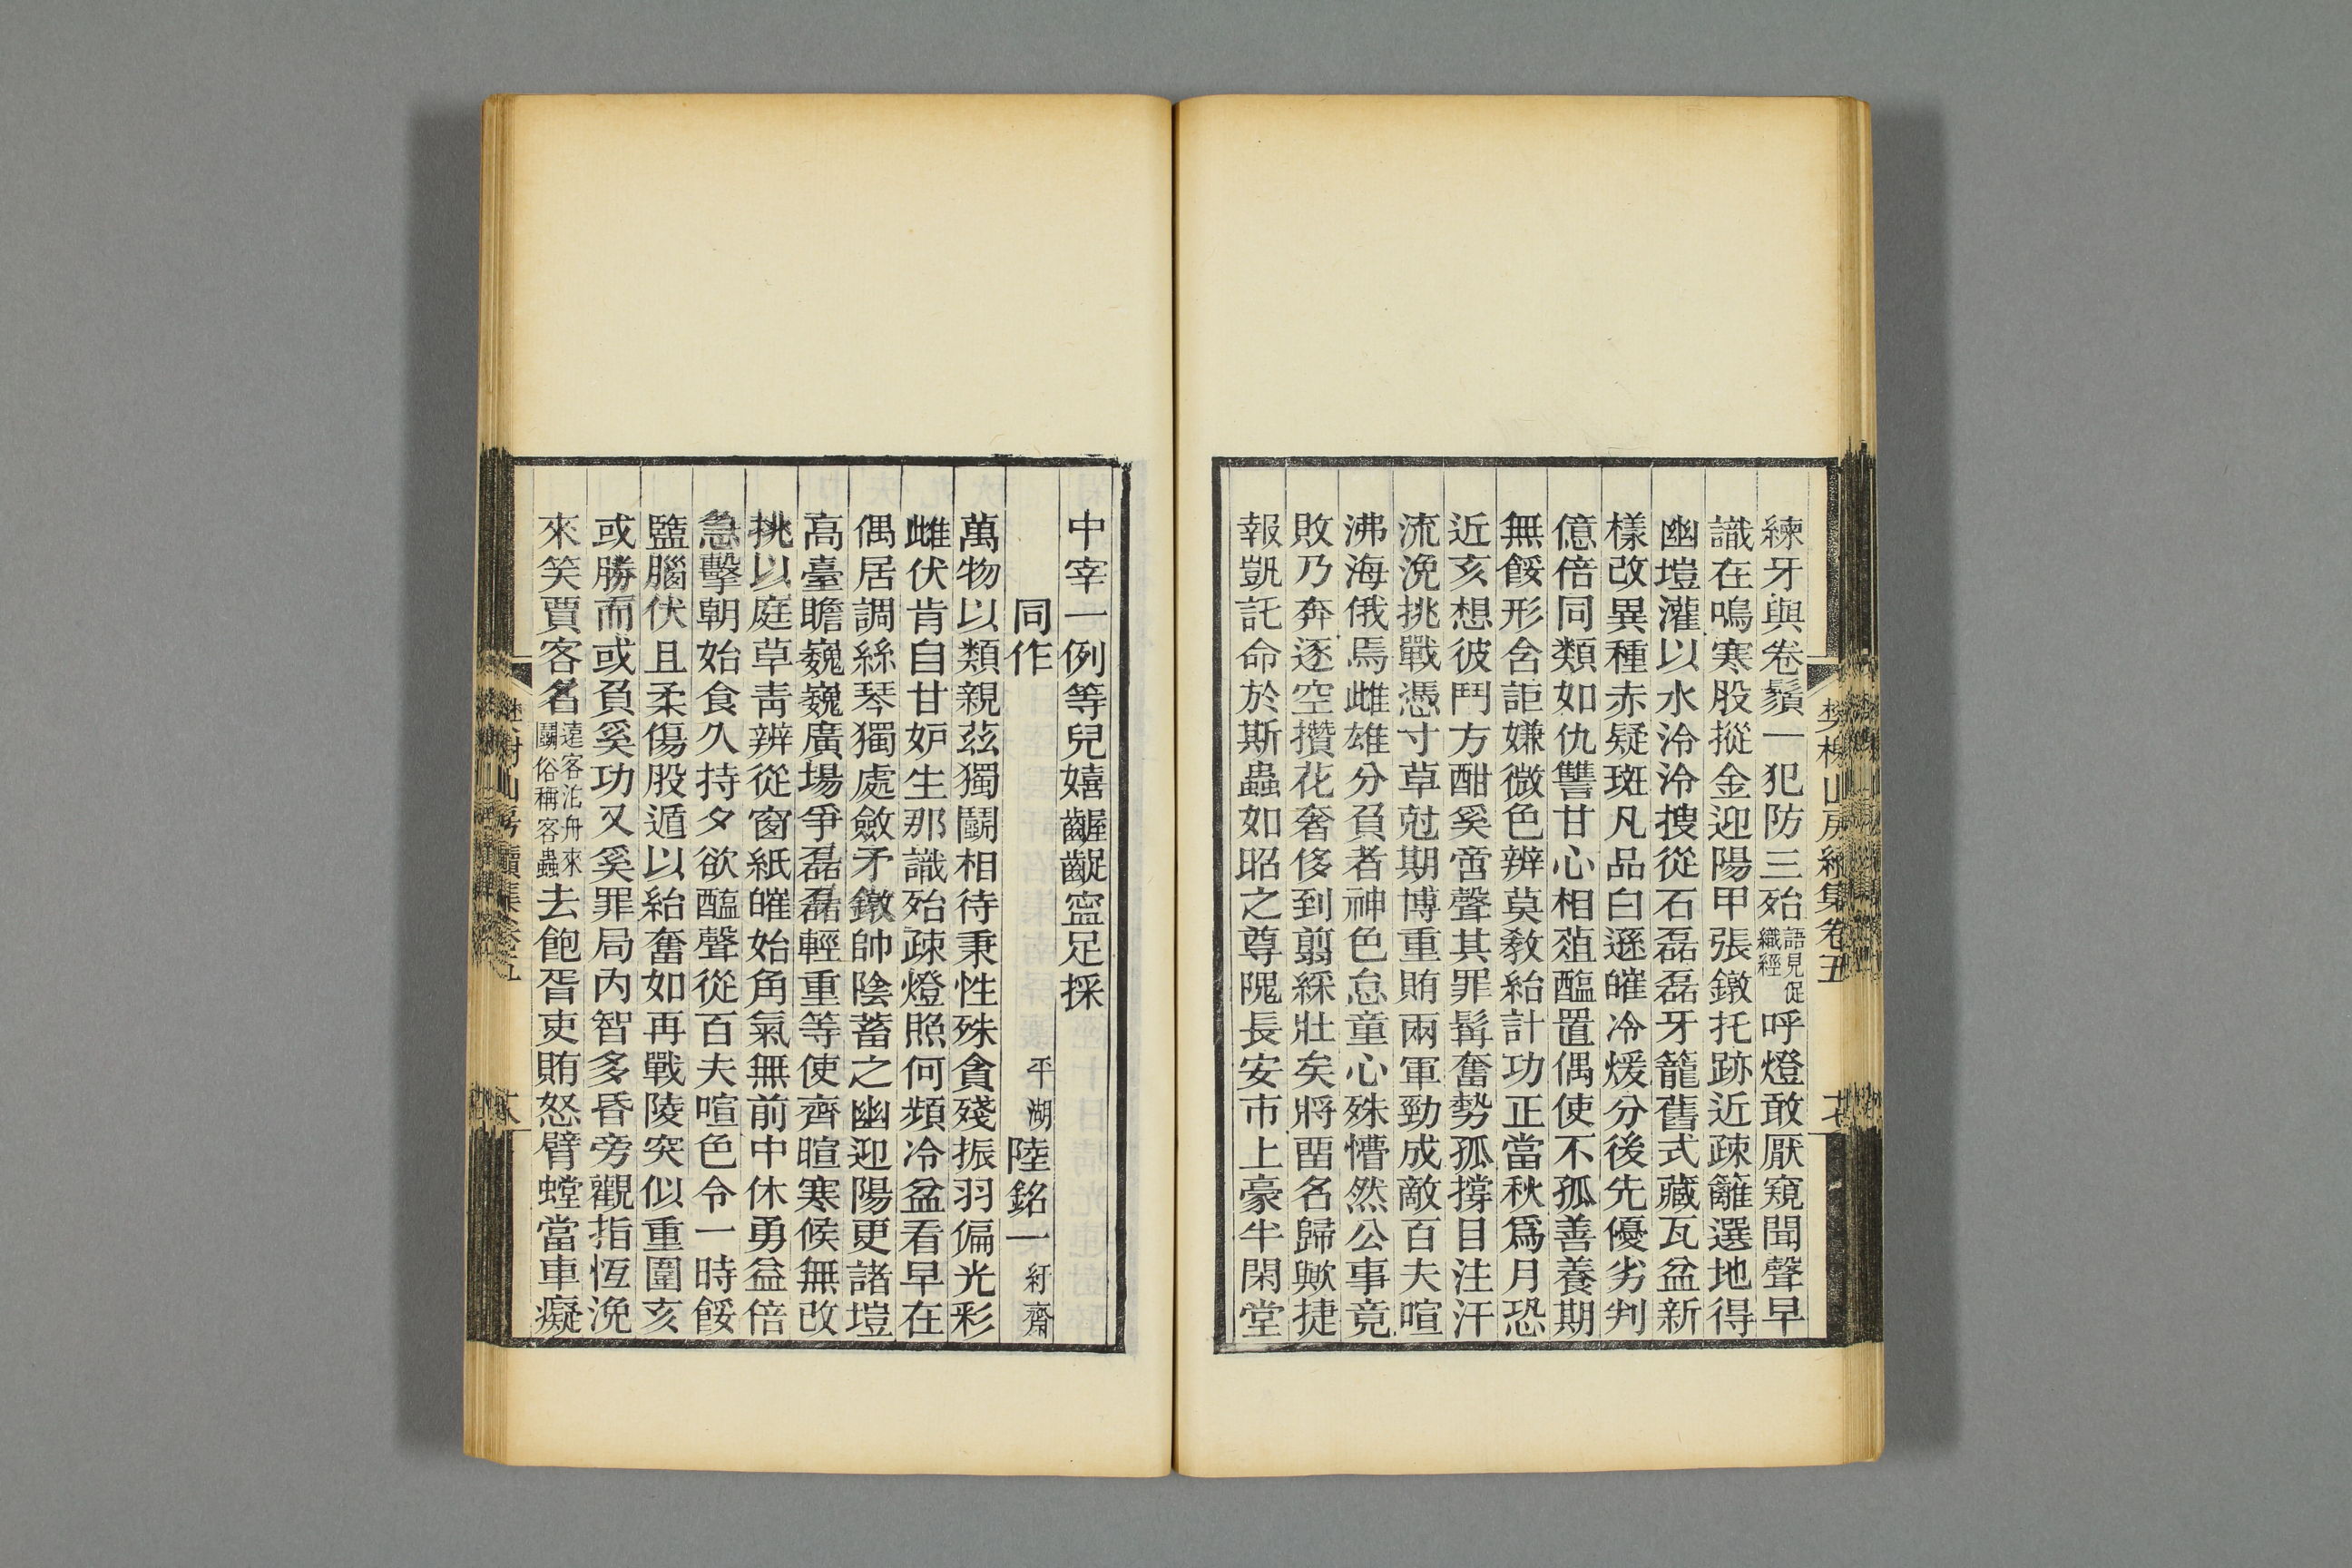 練牙與卷鬚一犯防三殆語見促織經呼燈敢厭窺聞聲早
識在鳴寒股摐金迎陽甲張鐓托跡近疎籬選地得
幽塏灌以水泠泠搜從石磊磊牙籠舊式藏瓦盆新
樣改異種赤疑斑凡品白遜皠冷煖分後先優劣判
億倍同類如仇讐甘心相葅醢置偶使不孤善養期
無餒形含詎嫌微色辨莫敎紿計功正當秋爲月恐
近亥想彼鬥方酣奚啻聲其罪髯奮勢孤撐目注汗
流浼挑戰憑寸草尅期博重賄兩軍勁成敵百夫喧
沸海俄焉雌雄分負者神色怠童心殊懵然公事竟
敗乃奔逐空攢花奢侈到翦綵壯矣將畱名歸歟捷
報凱託命於斯蟲如昭之尊隗長安市上豪半閑堂
中宰一例等兒嬉齷齪寍足採
同作 平湖陸銘一紆齋
萬物以類親茲獨鬭相待秉性殊貪殘振羽偏光彩
雌伏肯自甘妒生那識殆疎燈照何頻冷盆看早在
偶居調絲琴獨處斂矛鐓帥陰蓄之幽迎陽更諸塏
高臺瞻巍巍廣場爭磊磊輕重等使齊暄寒候無改
挑以庭草靑辨從窗紙皠始角氣無前中休勇益倍
急擊朝始食久持夕欲醢聲從百夫喧色令一時餒
鹽腦伏且柔傷股遁以紿奮如再戰陵突似重圍亥
或勝而或負奚功又奚罪局內智多昏旁觀指恆浼
來笑賈客名遠客泊舟來鬭俗稱客蟲去飽胥吏賄怒臂螳當車癡